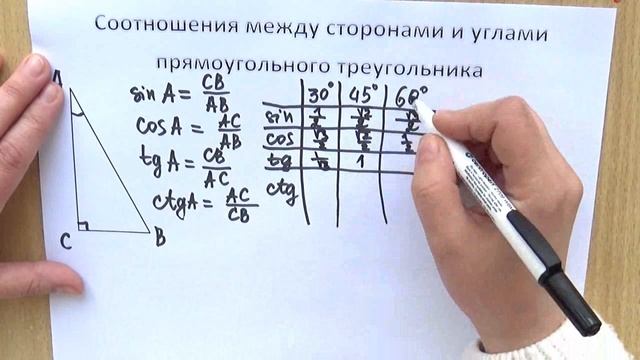 Соотношения между сторонами и углами
прямоугольного треугольника
A
C
B
sin A = CB/AB
cos A = AC/AB
tg A = CB/AC
ctg A = AC/CB
30° 45° 60°
sin 1/2 √2/2 √3/2
cos √3/2 √2/2 1/2
tg 1/√3 1
ctg